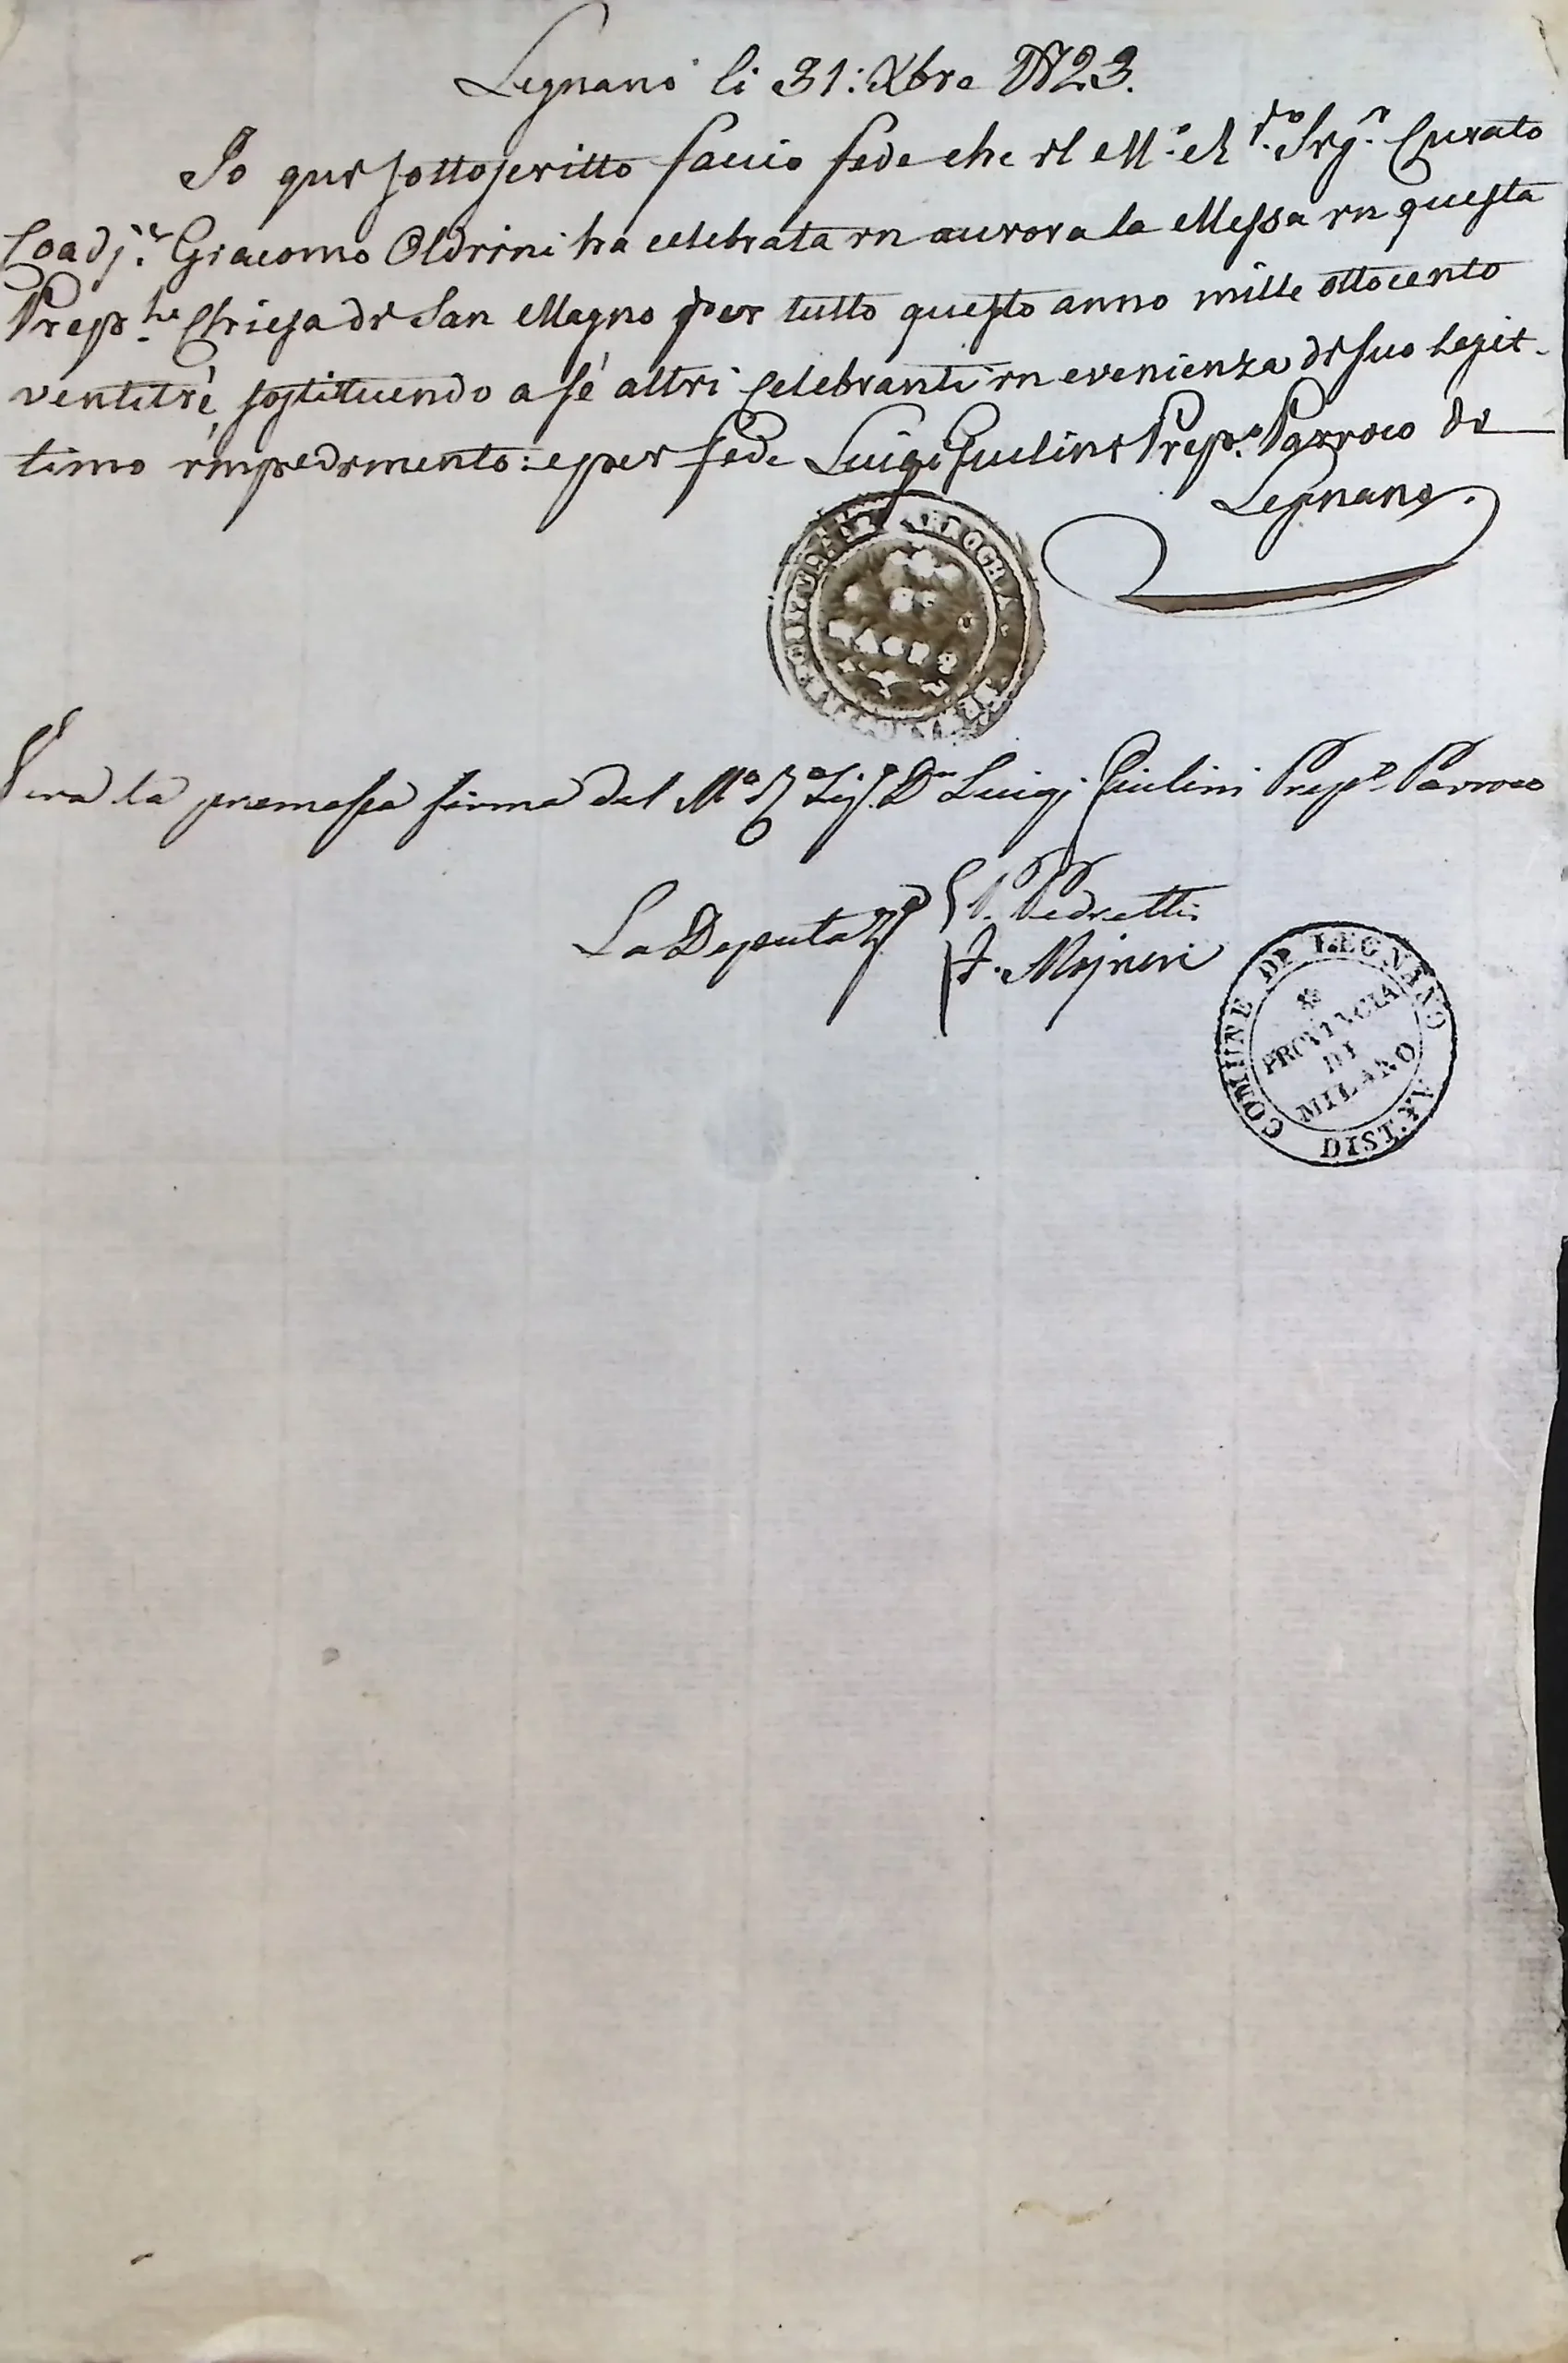 Legnano li 31: Xbre 1823.
Io qui sottoscritto faccio fede che il M.o R.do Sig.r Curato
Coad.re Giacomo Oldrini ha celebrata in aurora la Messa in questa
Prep.le Chiesa di San Magno per tutto questo anno mille ottocento
ventitrè, sostituendo a sé altri Celebranti in evenienza di suo legit-
timo impedimento: e per fede Luigi Giulini Prep.o Parroco di
Legnano.
PARROCHIA
S.
MAGNO
Vera la premessa firma del M.o R.o Sig. Dn Luigi Giulini Prep.o Parroco
La Deputaz.e P. Pedretti
COMUNE DI LEGNANO
PROVINCIA
DI
MILANO
DIST. XV